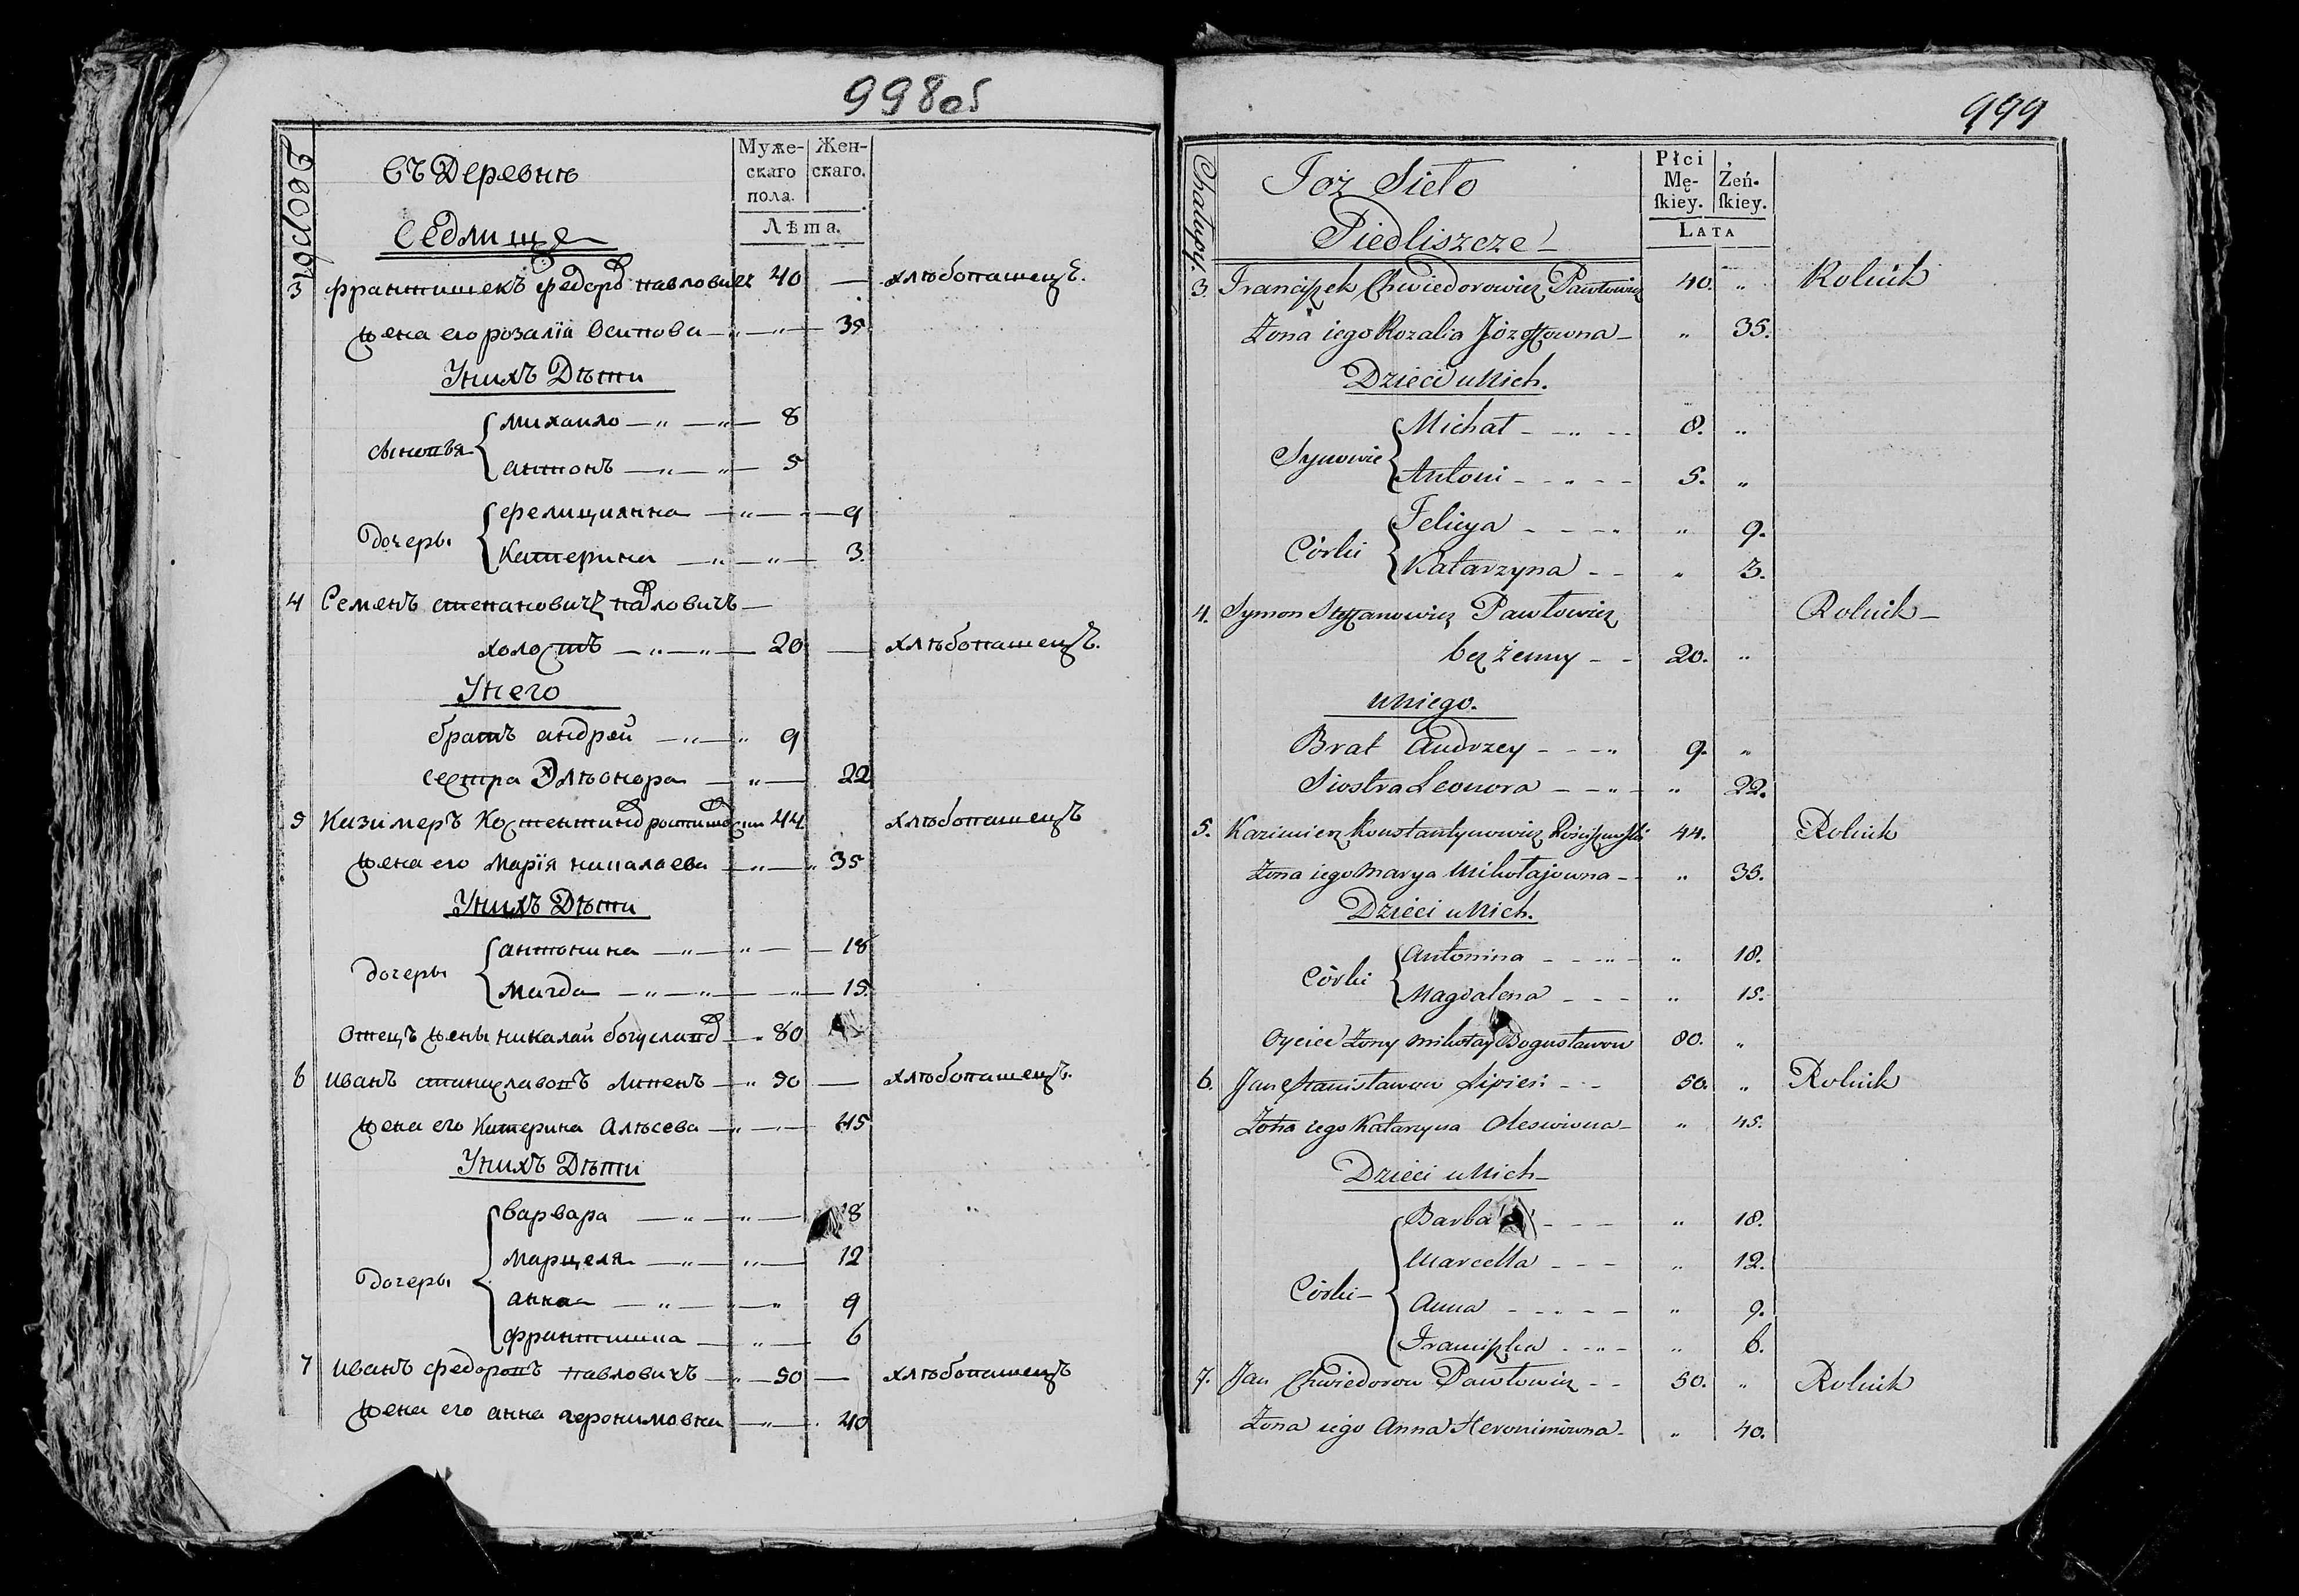 998об
Дворы
въ Деревнѣ
Седлище
Муже-
скаго
пола.
Жен-
скаго.
Лѣта.
3 Францишекъ федоровъ павловичъ 40 — хлѣбопашецъ.
жена его розалїя Осипова — „ — „ — 35
Унихъ Дѣти
сыновья
михаило — „ — „ — 8
антонъ — „ — „ — 5
дочеры
фелицианна — „ — 9
Катерина — „ — „ — 3.
4 Семенъ степановичъ павловичъ —
холостъ — „ — „ — 20 — хлѣбопашецъ.
Унего
братъ андрей — „ — „ 9
сестра Элѣонора — „ — 22
5 Казимеръ 44. хлѣбопашецъ
жена его Марїя николаева — „ — „ 35
Унихъ Дѣти
дочеры
антонина — „ — „ — 18
Магда — „ — „ — „ — 15.
Отецъ жены николай богуславовъ — „ 80
6 Иванъ станиславовъ Липень — „ 50 — хлѣбопашецъ.
жена его Катерина Алѣсева — „ — 45
Унихъ Дѣти
дочеры
варвара — „ — „ — 18
марцеля — „ — „ — 12
анна — „ — „ 9
францишка — „ — 6
7 Иванъ федоровъ павловичъ — „ — 50 — хлѣбопашецъ
жена его анна геронимовна — „ — . 40
999
Chałupy.
Toż Sioło
Siedliszcze
Płci
Mę-
ſkiey.
Żeń-
ſkiey.
LATA
3. Franciszek Chwiedorowicz Pawłowicz 40. „ Rolnik
Żona iego Rozalia Józefowna — „ 35.
Dzieci u Nich.
Synowie
Michał - - „ - - 8. „
Antoni - - „ - - 5. „
Córki
Felicya - - - „ „ 9.
Katarzyna - - „ 3.
4. Symon Stefanowicz Pawłowicz Rolnik —
bez żenny - - 20. „
u Niego.
Brat Andrzey - - - „ 9. „
Siostra Leonora - - „ - „ 22.
5. Kazimierz Konstantynowicz Rościszewski 44. Rolnik
Żona iego Marya Mikołajowna - - „ 35.
Dzieci u Nich.
Córki
Antonina - - - „ - „ 18.
Magdalena - - - „ 15.
Oyciec Żony Mikołay Bogusławow 80. „
6. Jan Stanisławow Lipień - - 50. „ Rolnik
Żona iego Katarzyna Olesiowna - „ 45.
Dzieci u Nich —
Córki —
Barbara - - - „ 18.
Marcella - - - „ 12.
Anna - - - - - „ 9.
Franciszka - - „ - „ 6.
7. Jan Chwiedorow Pawłowicz - - 50. „ Rolnik
Żona iego Anna Heronimówna - „ 40.